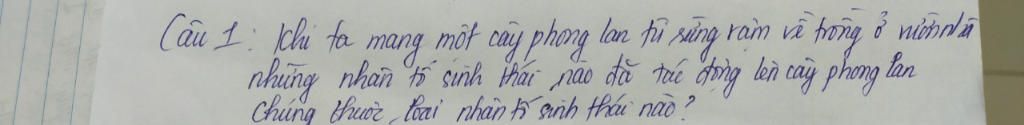 Câu 1: Khi ta mang một cây phong lan từ rừng rậm về trồng ở vườn nhà
những nhân tố sinh thái nào đã tác động lên cây phong lan
Chúng thuộc loại nhân tố sinh thái nào?